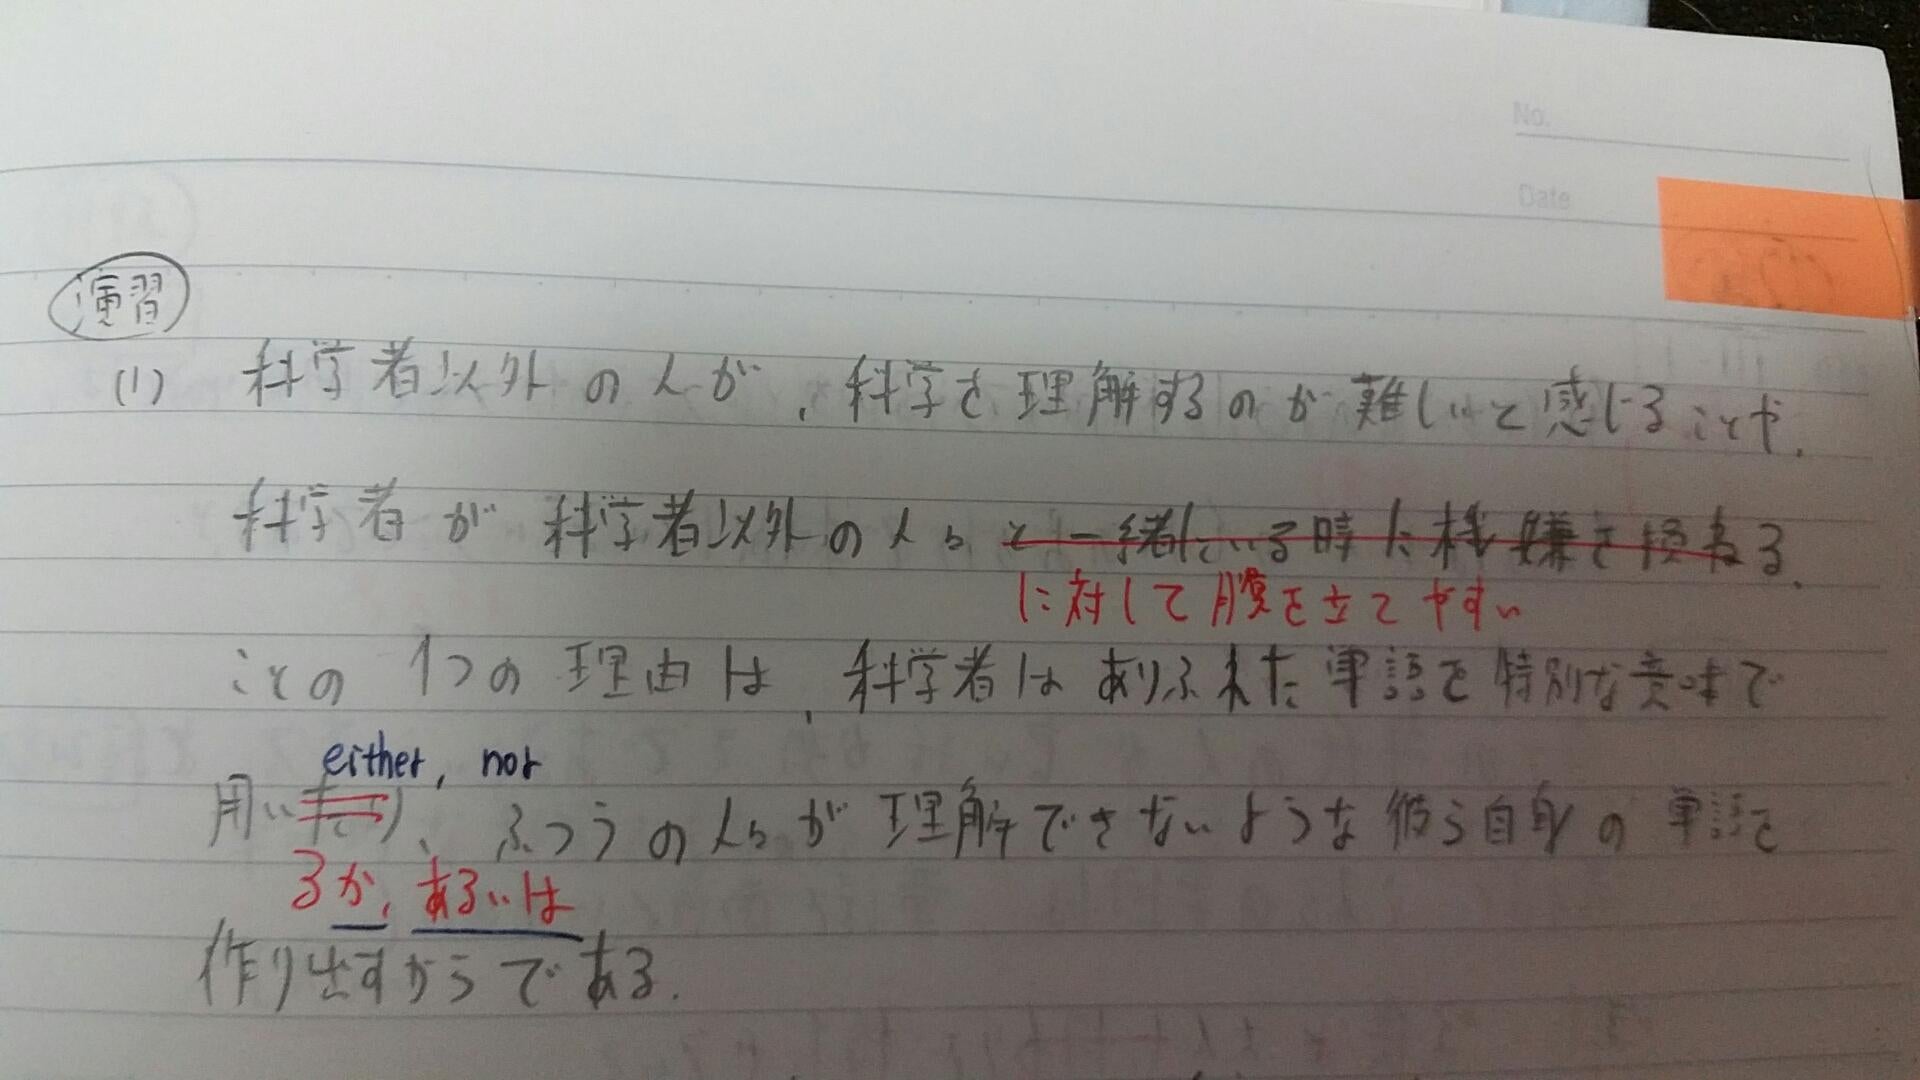 No.
Date
演習
(1) 科学者以外の人が、科学を理解するのが難しいと感じることや、
科学者が科学者以外の人々と一緒にいる時に機嫌を損ねる、
に対して腹を立てやすい
ことの1つの理由は、科学者はありふれた単語を特別な意味で
either, nor
用いたり、ふつうの人々が理解できないような彼ら自身の単語を
るか、あるいは
作り出すからである.